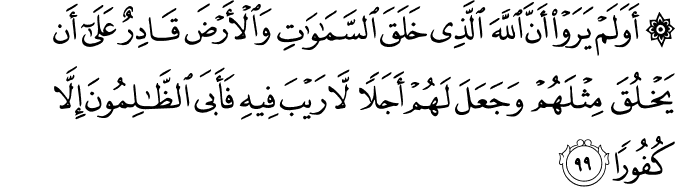 ۞ أَوَلَمْ يَرَوْا۟ أَنَّ ٱللَّهَ ٱلَّذِى خَلَقَ ٱلسَّمَـٰوَٰتِ وَٱلْأَرْضَ قَادِرٌ عَلَىٰٓ أَن
يَخْلُقَ مِثْلَهُمْ وَجَعَلَ لَهُمْ أَجَلًا لَّا رَيْبَ فِيهِ فَأَبَى ٱلظَّـٰلِمُونَ إِلَّا
كُفُورًا ٩٩